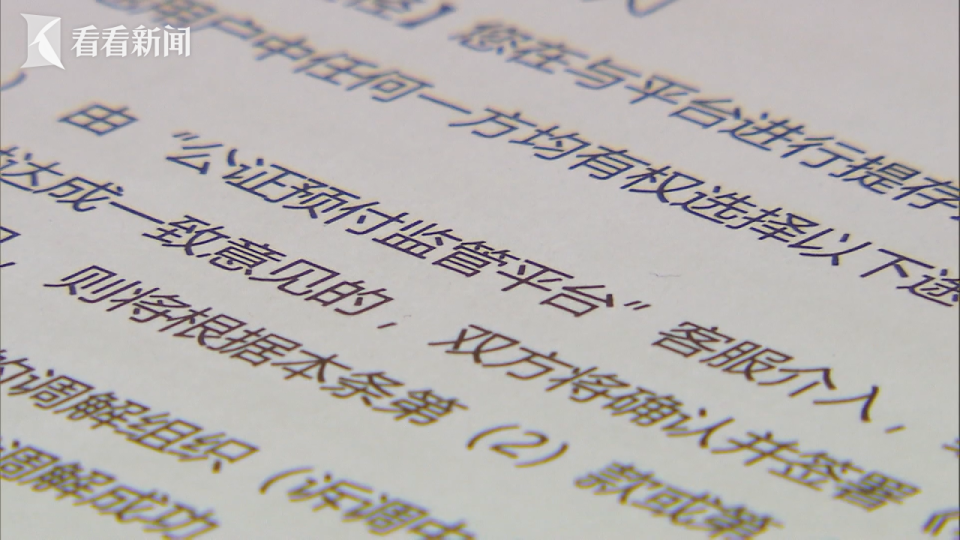 看看新闻
径】您在与平台进行提存
用户中任何一方均有权选择以下途
）由“公证预付监管平台”客服介入，
达成一致意见的，双方将确认并签署《
，则将根据本条第（2）款或第
的调解组织（诉调中
调解成功